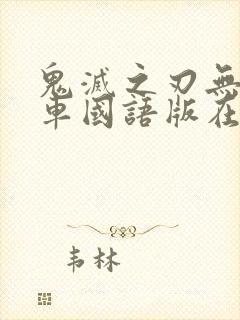 鬼滅之刃無
車國語版在
韦林